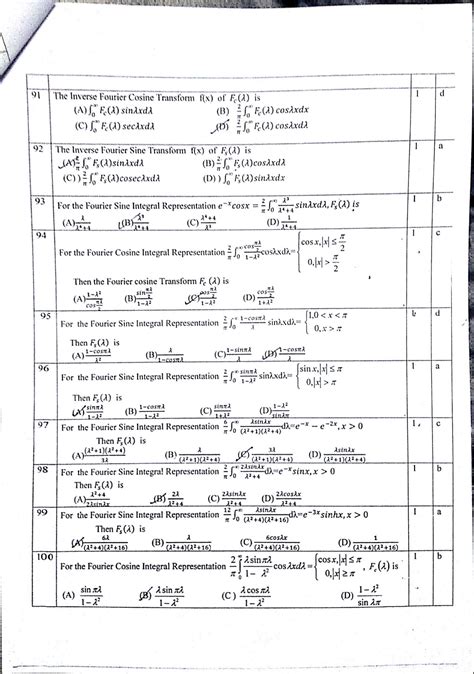 91 The Inverse Fourier Cosine Transform f(x) of F_c(λ) is 1 d
(A) ∫_0^∞ F_c(λ) sinλxdλ (B) 2/π ∫_0^∞ F_c(λ) cosλxdx
(C) ∫_0^∞ F_c(λ) secλxdλ (D) 2/π ∫_0^∞ F_c(λ) cosλxdλ
92 The Inverse Fourier Sine Transform f(x) of F_s(λ) is 1 a
(A) 2/π ∫_0^∞ F_s(λ)sinλxdλ (B) 2/π ∫_0^∞ F_s(λ)cosλxdλ
(C) ) 2/π ∫_0^∞ F_s(λ)cosecλxdλ (D) ) ∫_0^∞ F_s(λ)sinλxdx
93 For the Fourier Sine Integral Representation e^{-x}cosx = 2/π ∫_0^∞ λ^3/(λ^4+4) sinλxdλ, F_s(λ) is 1 b
(A) λ/(λ^4+4) (B) λ^3/(λ^4+4) (C) (λ^4+4)/λ^3 (D) 1/(λ^4+4)
94 For the Fourier Cosine Integral Representation 2/π ∫_0^∞ cos(πλ/2)/(1-λ^2) cosλxdλ= {cos x, |x| ≤ π/2 1 c
0, |x| > π/2
Then the Fourier cosine Transform F_c(λ) is
(A) (1-λ^2)/cos(πλ/2) (B) sin(πλ/2)/(1-λ^2) (C) cos(πλ/2)/(1-λ^2) (D) cos(πλ/2)/(1+λ^2)
95 For the Fourier Sine Integral Representation 2/π ∫_0^∞ (1-cosπλ)/λ sinλxdλ= {1,0 < x < π 1 d
0, x > π
Then F_s(λ) is
(A) (1-cosπλ)/λ^2 (B) λ/(1-cosπλ) (C) (1-sinπλ)/λ (D) (1-cosπλ)/λ
96 For the Fourier Sine Integral Representation 2/π ∫_0^∞ sinπλ/(1-λ^2) sinλxdλ= {sin x, |x| ≤ π 1 a
0, |x| > π
Then F_s(λ) is
(A) sinπλ/(1-λ^2) (B) (1-cosπλ)/(1-λ^2) (C) sinπλ/(1+λ^2) (D) (1-λ^2)/sinπλ
97 For the Fourier Sine Integral Representation 6/π ∫_0^∞ λsinλx/((λ^2+1)(λ^2+4)) dλ=e^{-x} − e^{-2x}, x > 0 1 c
Then F_s(λ) is
(A) (λ^2+1)(λ^2+4)/3λ (B) λ/((λ^2+1)(λ^2+4)) (C) 3λ/((λ^2+1)(λ^2+4)) (D) λsinλx/((λ^2+1)(λ^2+4))
98 For the Fourier Sine Integral Representation 2/π ∫_0^∞ 2λsinλx/(λ^4+4) dλ=e^{-x}sinx, x > 0 1 b
Then F_s(λ) is
(A) (λ^4+4)/2λsinλx (B) 2λ/(λ^4+4) (C) 2λsinλx/(λ^4+4) (D) 2λcosλx/(λ^4+4)
99 For the Fourier Sine Integral Representation 12/π ∫_0^∞ λsinλx/((λ^2+4)(λ^2+16)) dλ=e^{-3x}sinhx, x > 0 1 a
Then F_s(λ) is
(A) 6λ/((λ^2+4)(λ^2+16)) (B) λ/((λ^2+4)(λ^2+16)) (C) 6cosλx/((λ^2+4)(λ^2+16)) (D) 1/((λ^2+4)(λ^2+16))
100 For the Fourier Cosine Integral Representation 2/π ∫_0^∞ λsinπλ/(1− λ^2) cosλxdλ= {cos x, |x| ≤ π , F_c(λ) is 1 b
0, |x| ≥ π
(A) sin πλ/(1−λ^2) (B) λ sin πλ/(1−λ^2) (C ) λ cos πλ/(1−λ^2) (D) (1−λ^2)/sin λπ